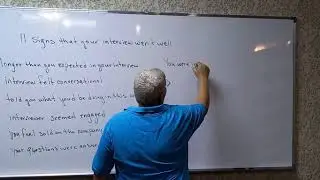 11 Signs that your interview went well
longer than you expected in your interview
You were
interview felt conversational
told you what you'd be doing in this
interviewer seemed engaged
you feel sold on the company
your questions were answe